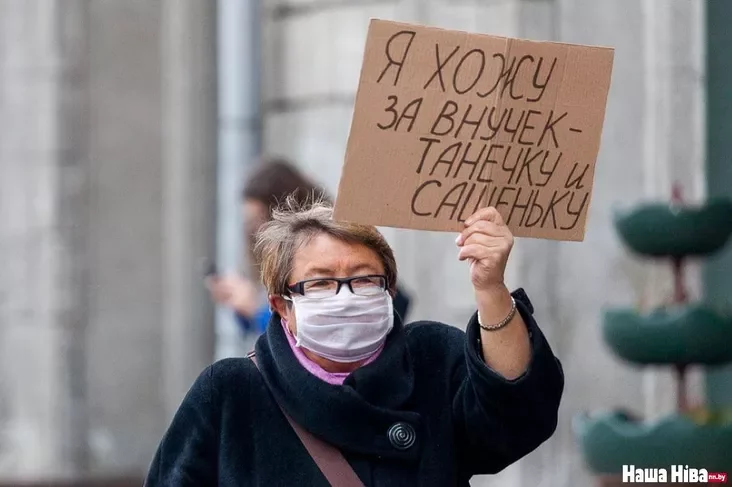 Я ХОЖУ
ЗА ВНУЧЕК-
ТАНЕЧКУ и
САШЕНЬКУ
Наша Ніва nn.by